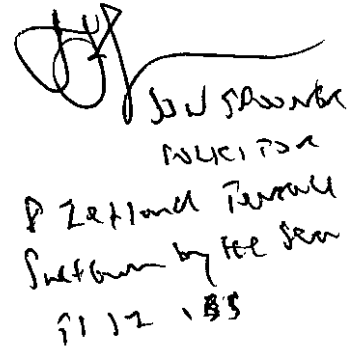 JON SPOONER
SOLICITOR
8 Zetland Terrace
Saltburn by the Sea
TS12 1BS